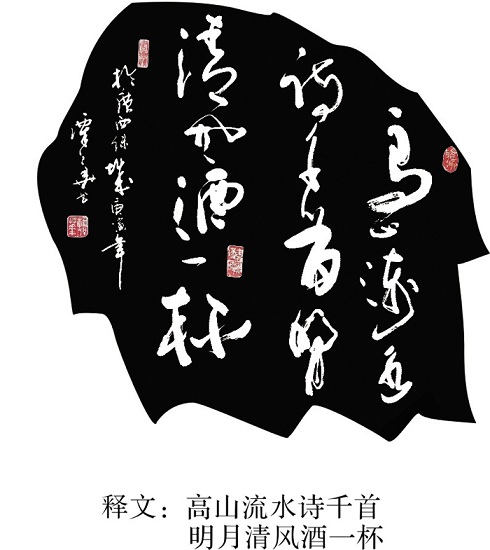 高山流水
诗千首明月
清风酒一杯
释文：高山流水诗千首
明月清风酒一杯